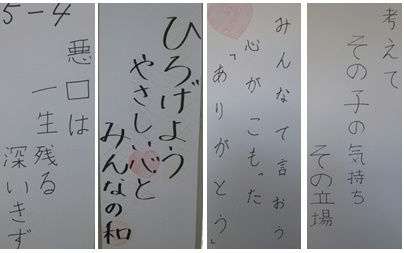 5-4
悪口は
一生残る
深いきず
ひろげよう
やさしい心と
みんなの和
みんなで言おう
心がこもった
「ありがとう」
考えて
その子の気持ち
その立場